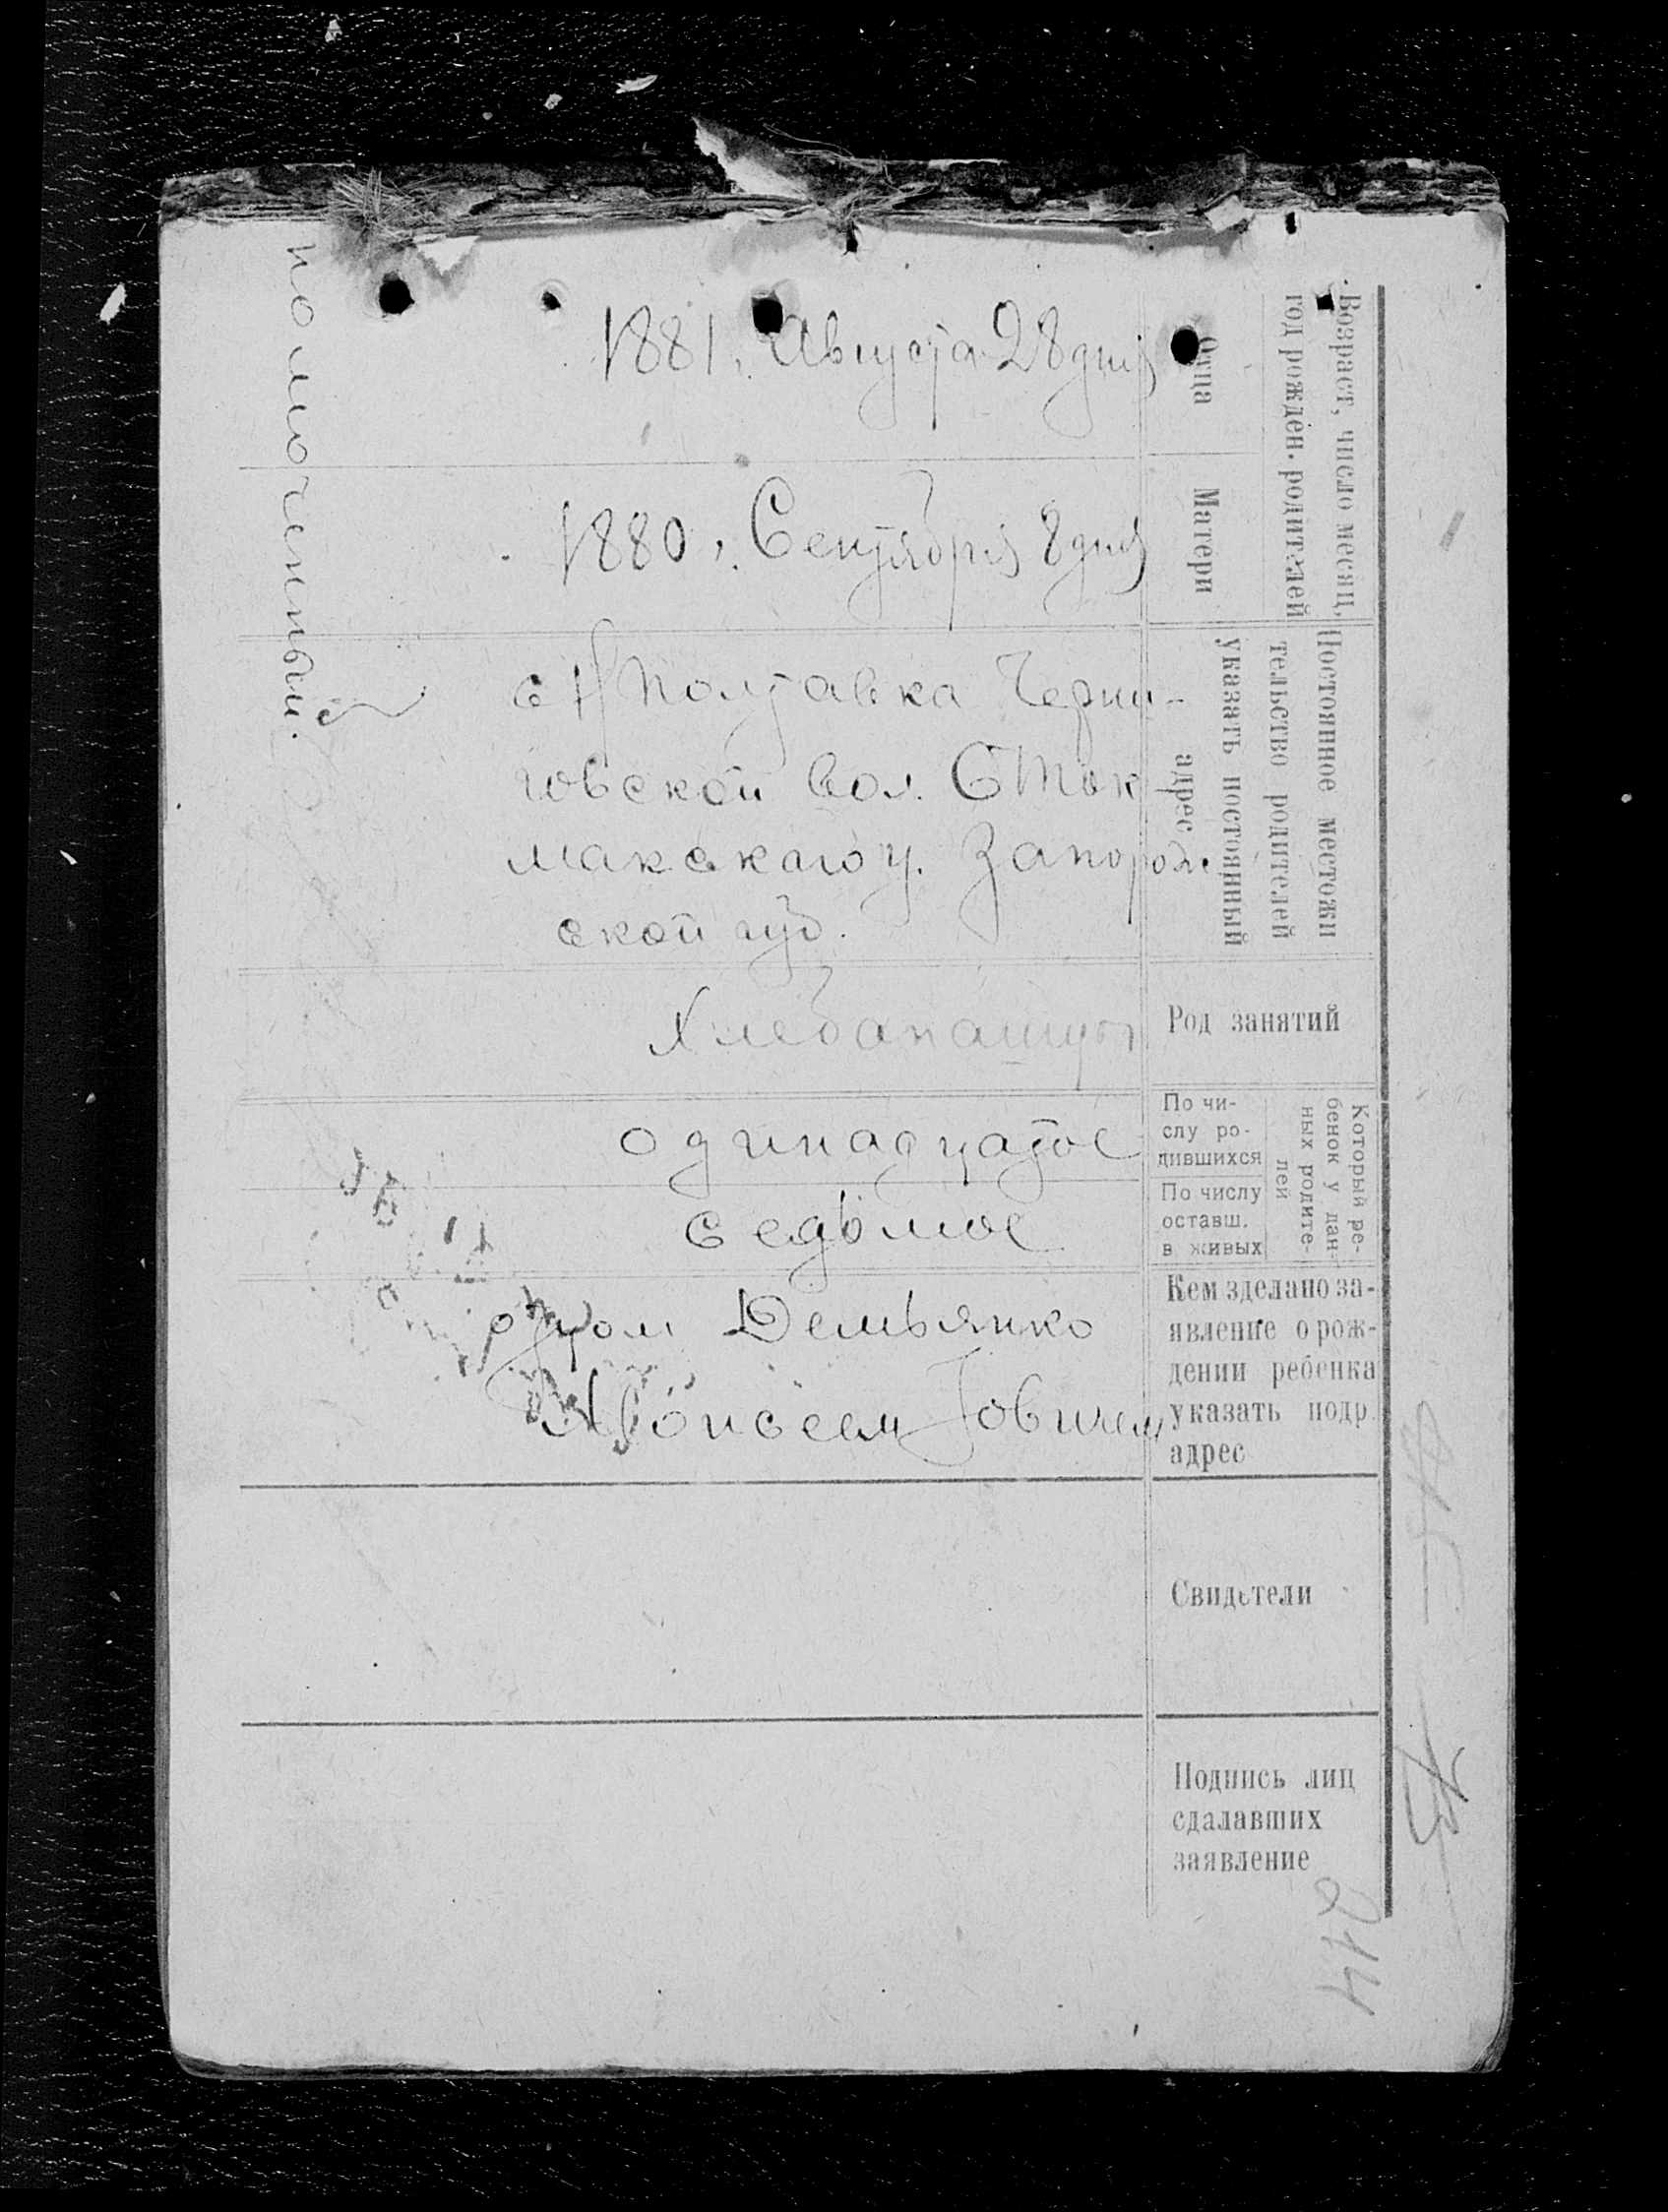 Возраст, число месяц,
год рожден. родителей
Отца
1881. Августа 28 дня
Матери
1880. Сентября 8 дня
Постоянное местожи
тельство родителей
указать постоянный
адрес
Полтавка Черни-
говской вол. Б Ток
макскаго у. Запорож
ской губ.
Род занятий
Хлебапашцы
Который ре-
бенок у дан-
ных родите-
лей
По чи-
слу ро-
дившихся
одинадцатое
По числу
оставш.
в живых
седьмое
Кем зделано за-
явление о рож-
дении ребенка
указать подр.
адрес
отцом Демьянко
Моисеем Іовичем
Свидетели
Подпись лиц
сдалавших
заявление
полмоченный.
244